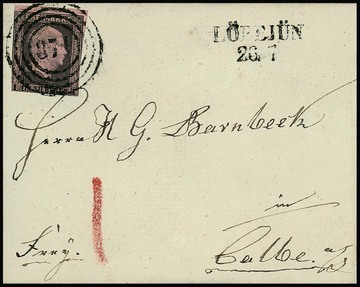 LÖBEJÜN
26/7
Herrn H G Barnbeck
in
Frey.
Calbe a/S